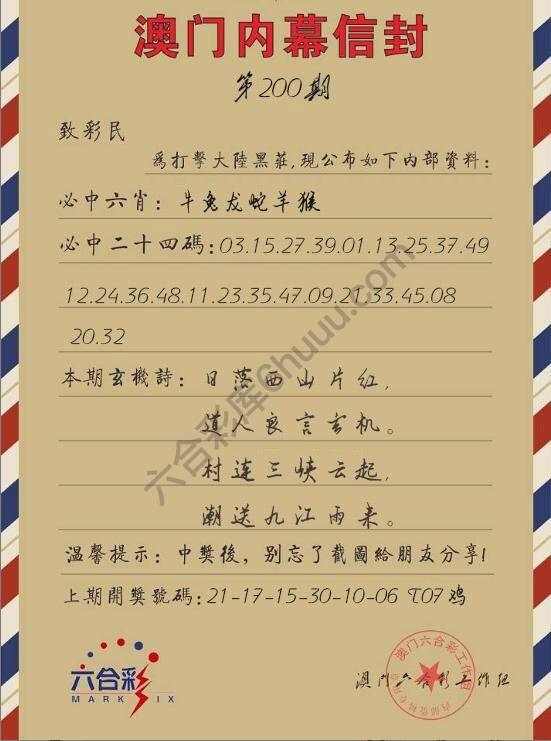 澳门内幕信封
第200期
致彩民
為打擊大陸黑莊,現公布如下内部資料:
必中六肖: 牛兔龙蛇羊猴
必中二十四碼:03.15.27.39.01.13.25.37.49
12.24.36.48.11.23.35.47.09.21.33.45.08
20.32
本期玄機詩: 日落西山片红,
道人良言玄机。
村连三峡云起,
潮送九江雨来。
温馨提示: 中獎後, 别忘了截圖給朋友分享!
上期開獎號碼:21-17-15-30-10-06 T07鸡
六合彩
MARK SIX
澳门六合彩工作组
澳门六合彩工作组
六合彩库@huuu.com